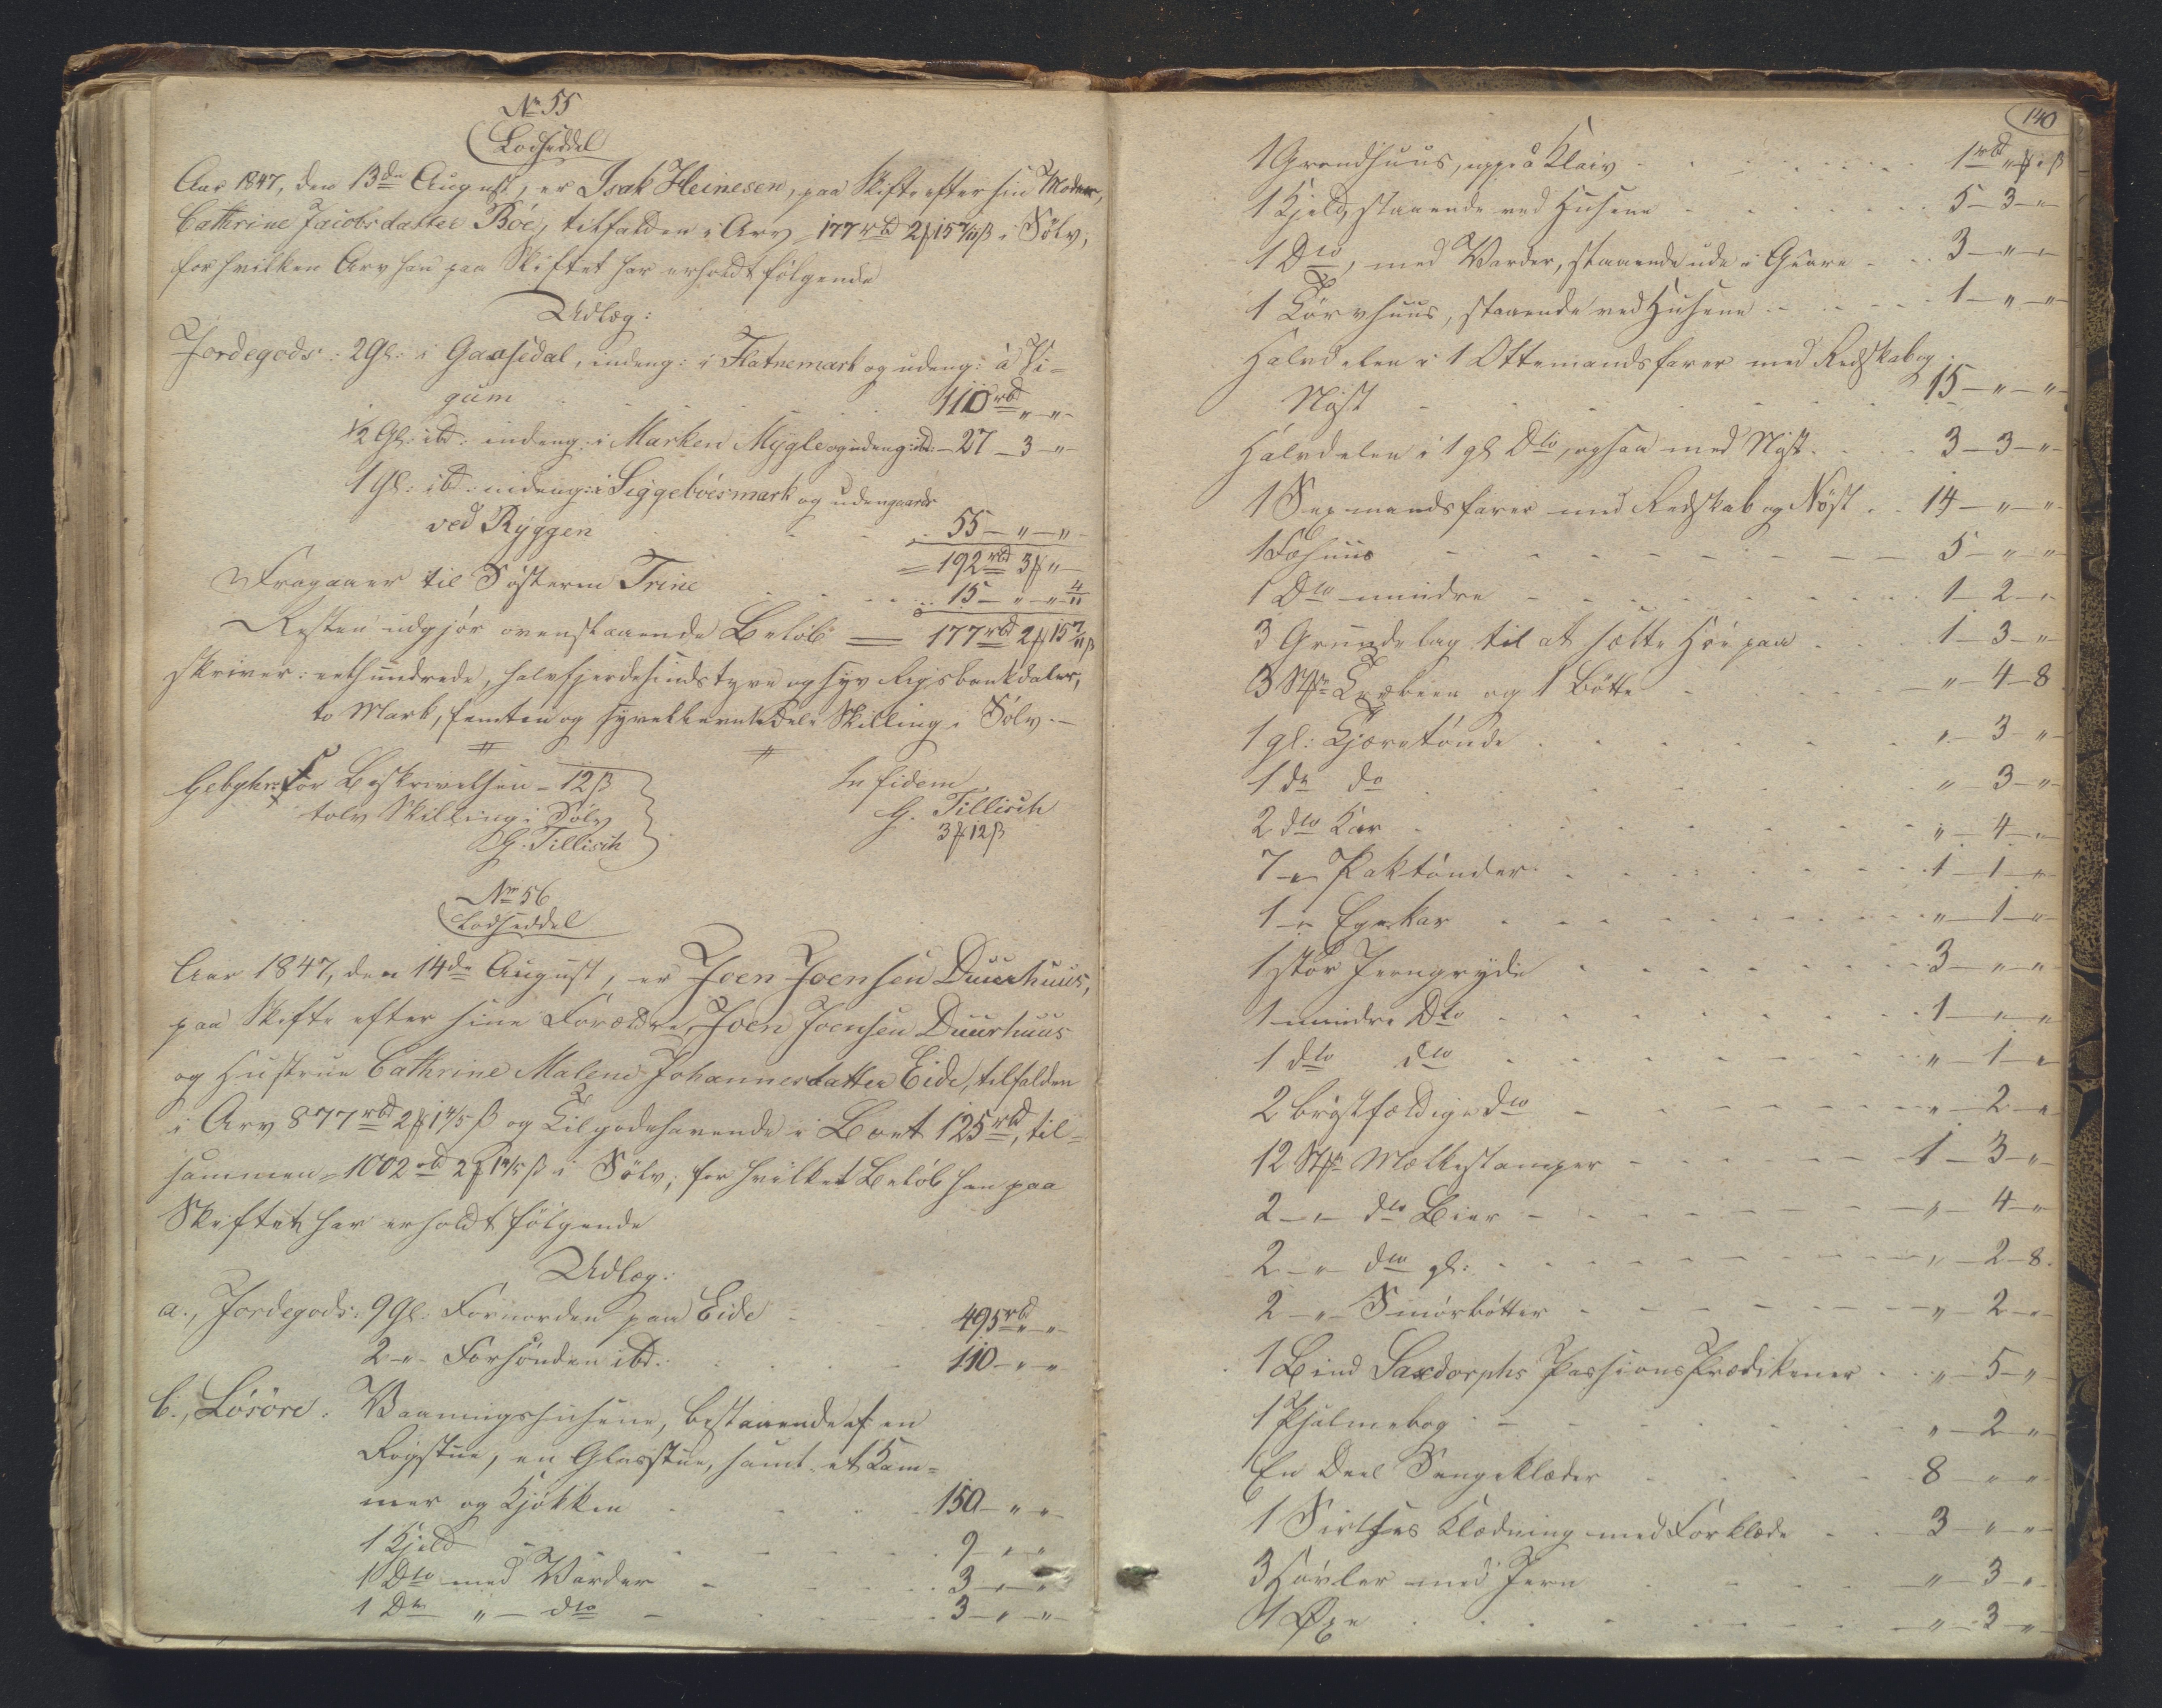 No 55
Lodseddel
Aar 1847, den 13de August, er Isak Heinesen, paa Skifte efter sin Moder,
Cathrine Jacobsdatter Böe, tilfalden i Arv 177 rbd 2 ₥ 15 7/11 ß i Sölv;
for hvilken Arv han paa Skiftet har erholdt følgende
Udlæg:
Jordegods: 2 Gl: i Gaasedal, indeng: i Flatnemark og udeng: à Ri-
gum 110 rbd " "
1/2 Gl: ibd: indeng: i Marken Mygle og udeng: ibd: - 27 - 3 - "
1 Gl: ibd: indeng: i Siggeböesmark og udengaards
ved Ryggen 55 - " - "
= 192 rbd 3 ₥ "
Fragaaer til Søsteren Trine 15 - " - " 4/11
Resten udgjör ovenstaaende Belöb = 177 rbd 2 ₥ 15 7/11 ß
skriver: eethundrede, halvfjerdesindstyve og syv Rigsbankdaler,
to Mark, femten og syv ellevtedele Skilling i Sölv. -
Gebyhr: For Beskrivelsen - 12 ß
tolv Skilling i Sölv
G. Tillisch
In fidem
G. Tillisch
3 ₥ 12 ß
No 56
Lodseddel
Aar 1847, den 14de August, er Joen Joensen Duurhuus,
paa Skifte efter sine Forældre, Joen Joensen Duurhuus
og Hustrue Cathrine Malene Johannesdatter Eide, tilfalden
i Arv 877 rbd 2 ₥ 1 4/5 ß og Tilgodehavende i Boet 125 rbd, til-
sammen = 1002 rbd 2 ₥ 1 4/5 ß i Sölv; for hvilket Belöb han paa
Skiftet har erholdt følgende
Udlæg:
a., Jordegods: 9 Gl: Fornorden paa Eide 495 rbd " "
2 - " - Forsönden ibd: 110 - " - "
b., Lösöre: Vaaningshusene, bestaaende af en
Rogstue, en Glasstue, samt et Kam-
mer og Kjøkken 150 - " - "
1 Kjeld 9 - " - "
1 Dto med Varder 3 - " - "
1 Dto " - dto 3 - " - "
140
1 Grondhuus, uppiá Kleiv 1 rbd " ₥ " ß
1 Kjeld, staaende ved Husene 5 - 3 - "
1 Dto, med Varder, staaende ude i Geare 3 - " - "
1 Törvhuus, staaende ved Husene 1 - " - "
Halvdelen i 1 Ottemandsfarer med Redskab og
Nöst 15 - " - "
Halvdelen i 1 gl Dto, ogsaa med Nöst 3 - 3 - "
1 Sexmandsfarer med Redskab og Nöst 14 - " - "
1 Fæhuus 5 - " - "
1 Dto mindre 1 - 2 - "
3 Grundelag til at sætte Höe paa 1 - 3 - "
3 Stkr og 1 Bötte " - 4 - 8
1 gl: Kjærntönde " - 3 - "
1 do do " - 3 - "
2 dto Kar " - 4 - "
7 - " - Paktönder 1 - 1 - "
1 - " - Egekar " - 1 - "
1 stor Jerngryde 3 - " - "
1 mindre Dto 1 - " - "
1 dto dto " - 1 - "
2 bröstfældige dto " - 2 - "
12 Stkr Mælkestamper 1 - 3 - "
2 - " - dto Bier " - 4 - "
2 - " - dto gl: " - 2 - 8.
2 - " - Smörbötter " - 2 - "
1 Bind Saxdorphs Passions Prædikener " - 5 - "
1 Psalmebog " - 2 - "
En Deel Sengeklæder 8 - " - "
1 Sirthes Klædning med Forklæde 3 - " - "
3 Hövler med Jern " - 3 - "
1 Öxe " - 3 - "